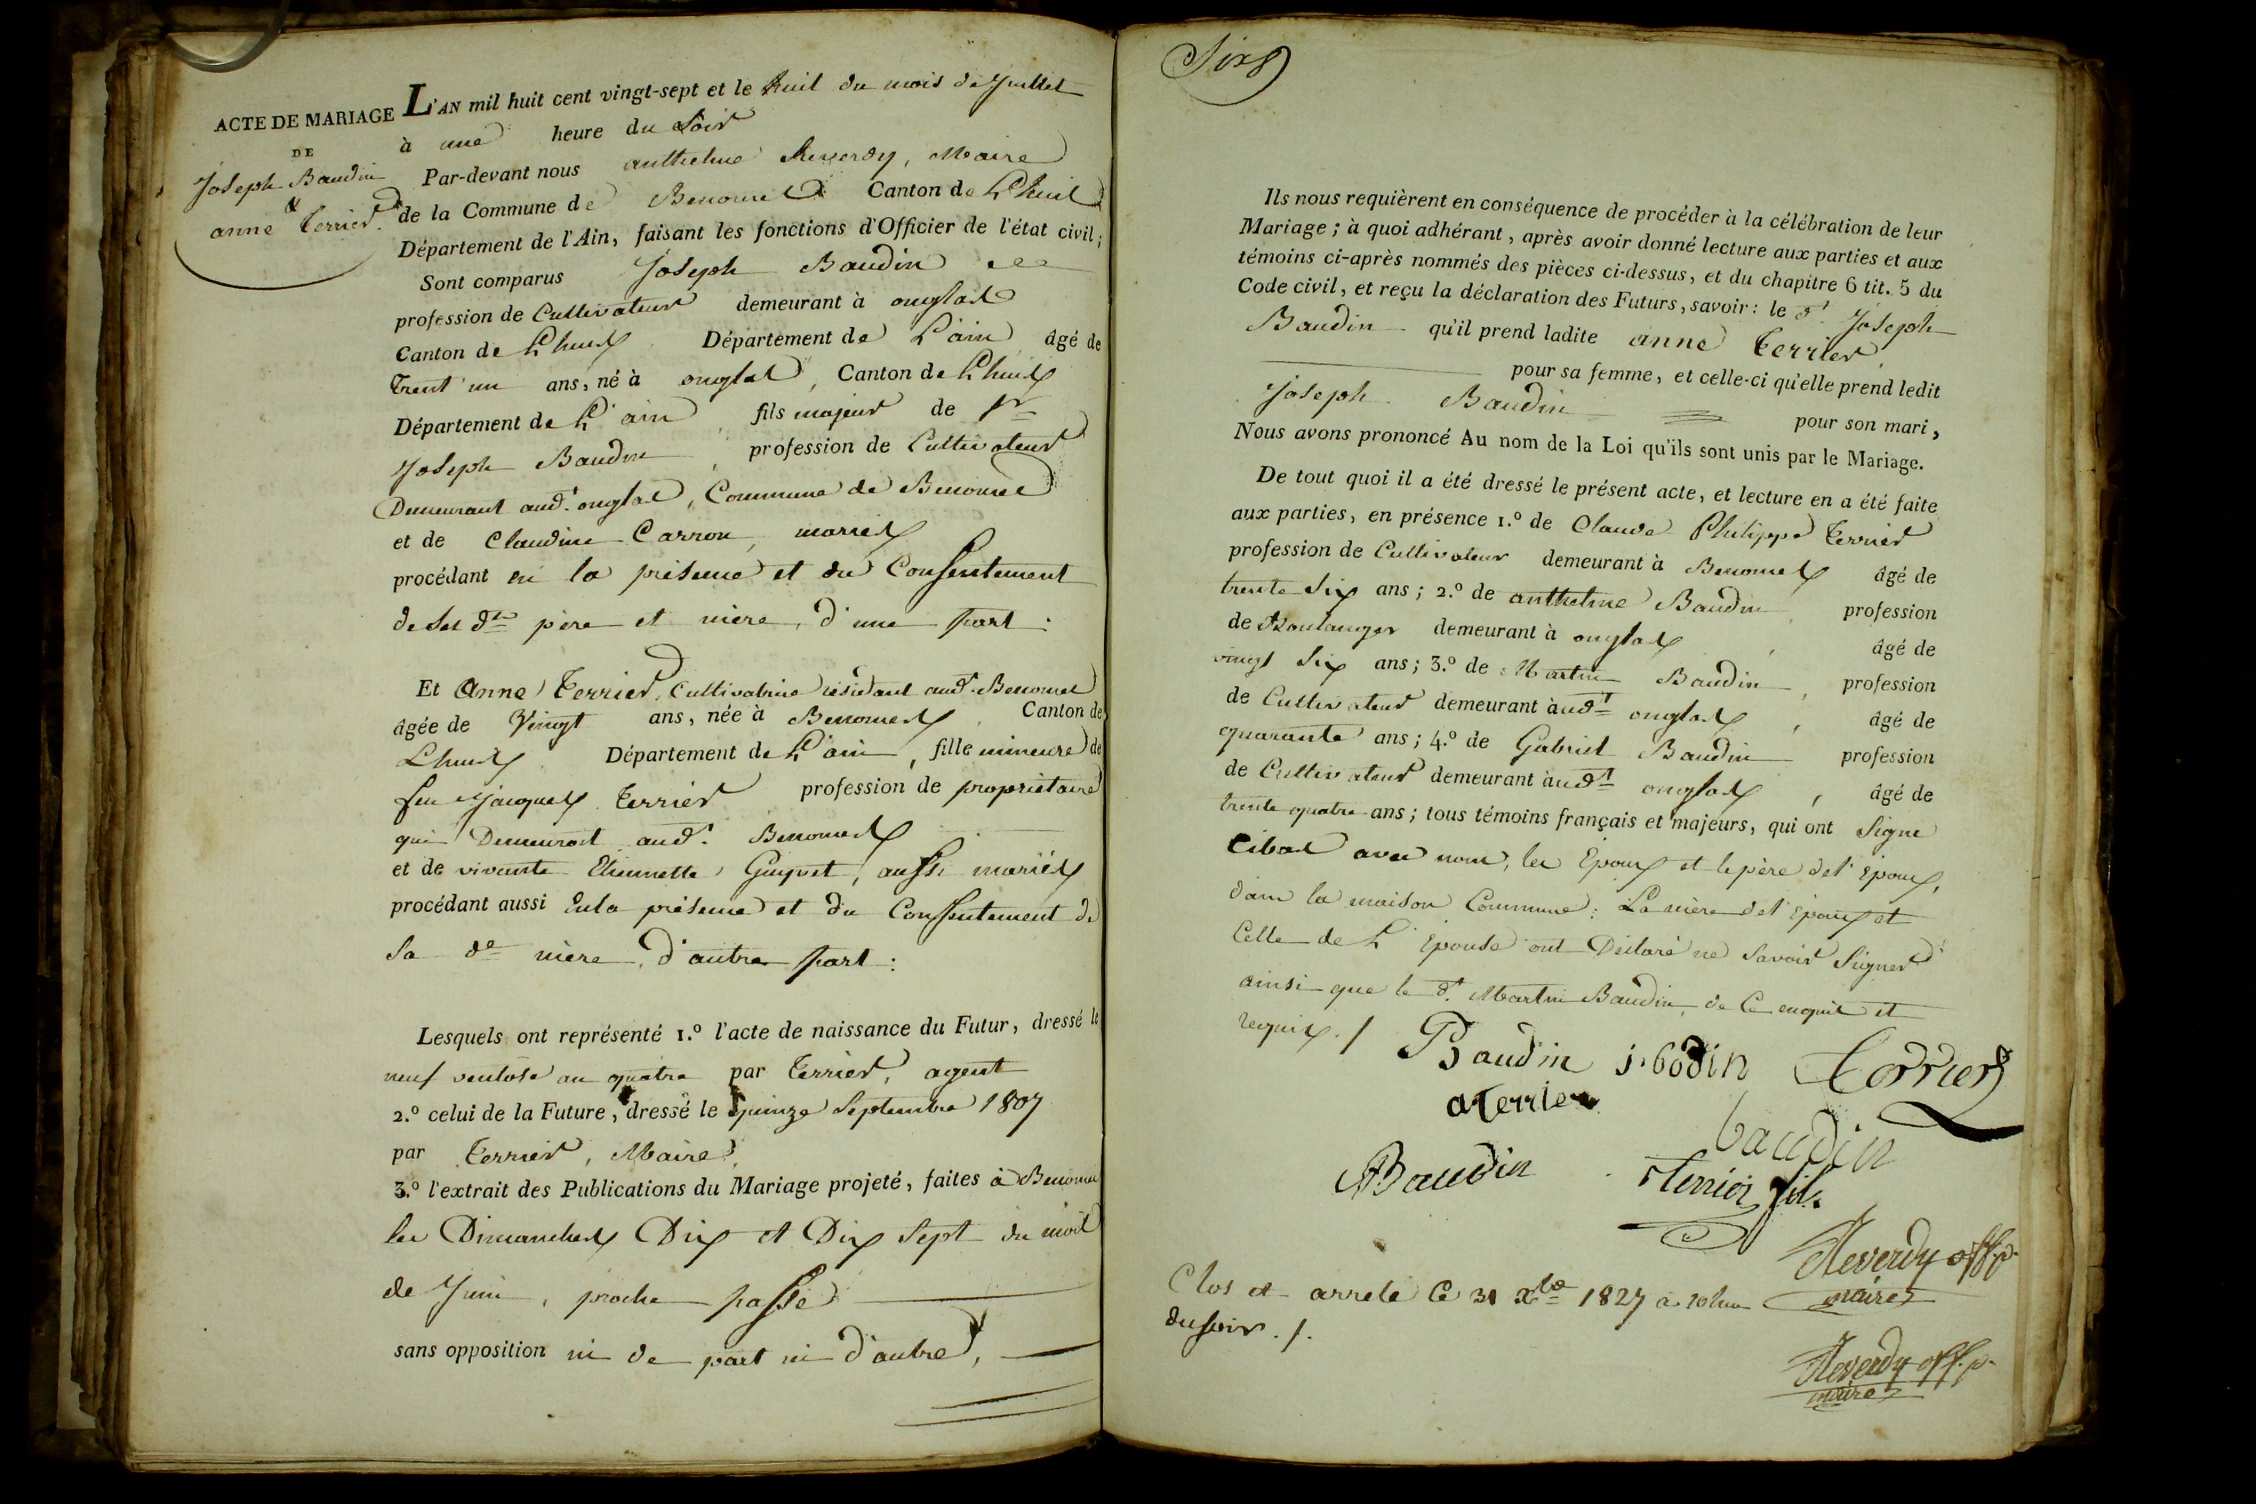 ACTE DE MARIAGE
DE
Joseph Baudin
&
anne Terrier.
L'AN mil huit cent vingt-sept et le huit du mois de Juillet
à une heure du Soir
Par-devant nous anthelme Reverdy, Maire
de la Commune de Benonce Canton de Lhuis
Département de l'Ain, faisant les fonctions d'Officier de l'état civil;
Sont comparus Joseph Baudin
profession de Cultivateur demeurant à onglas
Canton de Lhuis Département de L'ain âgé de
Trent'un ans, né à onglas, Canton de Lhuis
Département de L'ain, fils majeur de Sr
Joseph Baudin, profession de Cultivateur
Demeurant aud.t onglas, Commune de Benonce
et de Claudine Carron, mariés
procédant en la présence et du Consentement
de ses dts père et mère, d'une part:
Et Anne Terrier, Cultivatrice résidant aud.t Benonce
âgée de Vingt ans, née à Benonces, Canton de
Lhuis Département de L'ain, fille mineure de
feu Jacques Terrier profession de propriétaire
qui Demeuroit aud.t Benonces
et de vivante Etiennette Guyvet, aussi mariés
procédant aussi En la présence et du Consentement de
Sa de mère, d'autre part:
Lesquels ont représenté 1.º l'acte de naissance du Futur, dressé le
neuf ventose an quatre par Terrier, agent
2.º celui de la Future, dressé le quinze Septembre 1807
par Terrier, Maire
3.º l'extrait des Publications du Mariage projeté, faites à Benonce
les Dimanches Dix et Dix Sept du mois
de Juin, proche passé
sans opposition ni de part ni d'autre,
Six
Ils nous requièrent en conséquence de procéder à la célébration de leur
Mariage; à quoi adhérant, après avoir donné lecture aux parties et aux
témoins ci-après nommés des pièces ci-dessus, et du chapitre 6 tit. 5 du
Code civil, et reçu la déclaration des Futurs, savoir: le d.t Joseph
Baudin qu'il prend ladite anne Terrier
pour sa femme, et celle-ci qu'elle prend ledit
Joseph Baudin pour son mari,
Nous avons prononcé Au nom de la Loi qu'ils sont unis par le Mariage.
De tout quoi il a été dressé le présent acte, et lecture en a été faite
aux parties, en présence 1.º de Claude Philippe Terrier
profession de Cultivateur demeurant à Benonces âgé de
trente Six ans; 2.º de anthelme Baudin, profession
de Boulanger demeurant à onglas, âgé de
vingt Six ans; 3.º de Martin Baudin, profession
de Cultivateur demeurant aud.t onglas, âgé de
quarante ans; 4.º de Gabriel Baudin profession
de Cultivateur demeurant aud.t onglas, âgé de
trente quatre ans; tous témoins français et majeurs, qui ont Signé
Cibas avec nous, les Epoux et le père de l'Epoux,
dans la maison Commune: La mère de l'époux et
Celle de L'Epouse ont Déclaré ne Savoir Signer
ainsi que le d.t Martin Baudin, de Ce enquis et
requis./
Baudin j. bodin Terrier
a terrier
baudin
Baudin
Terrier fils
Reverdy off. p.
maire
Clos et arreté Ce 31 Xbre 1827 à 10 heu
du soir./.
Reverdy off. p.
maire